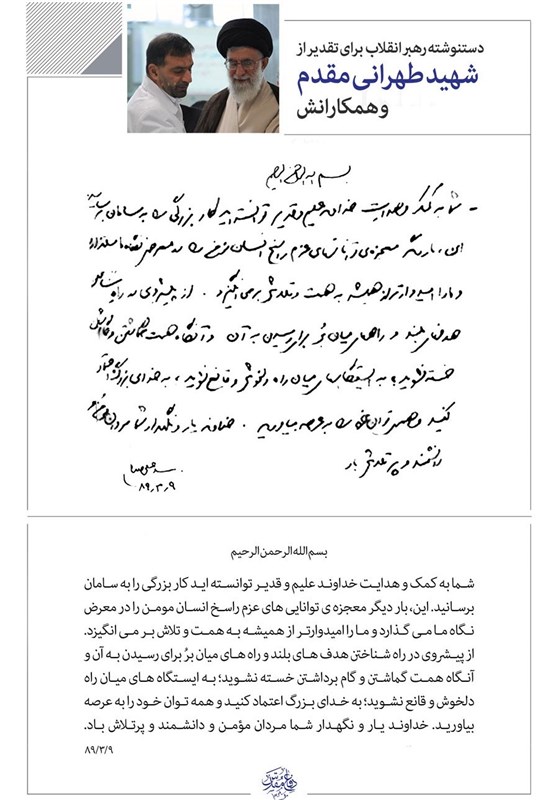 دستنوشته رهبر انقلاب برای تقدیر از
شهید طهرانی مقدم
و همکارانش
بسم الله الرحمن الرحیم
- شما به کمک و هدایت خداوند علیم و قدیر توانسته اید کار بزرگی را به سامان برسانید.
این، بار دیگر معجزه‌ی توانائی‌های عزم راسخ انسان مومن را در معرض نگاه ما میگذارد
و ما را امیدوارتر از همیشه به همت و تلاش برمی‌انگیزد. از پیشروی در راه شناختن
هدفهای بلند و راههای میان بُر برای رسیدن به آن و آنگاه همت گماشتن و گام برداشتن
خسته نشوید؛ به ایستگاههای میان راه دلخوش و قانع نشوید؛ به خدای بزرگ اعتماد
کنید و همه‌ی توان خود را به عرصه بیاورید. خداوند یار و نگهدار شما مردان مؤمن و
دانشمند و پرتلاش باد
سید علی خامنه‌ای
۸۹/۳/۹
بسم الله الرحمن الرحیم
شما به کمک و هدایت خداوند علیم و قدیر توانسته اید کار بزرگی را به سامان
برسانید. این، بار دیگر معجزه ی توانایی های عزم راسخ انسان مومن را در معرض
نگاه ما می گذارد و ما را امیدوارتر از همیشه به همت و تلاش بر می انگیزد.
از پیشروی در راه شناختن هدف های بلند و راه های میان بُر برای رسیدن به آن و
آنگاه همت گماشتن و گام برداشتن خسته نشوید؛ به ایستگاه های میان راه
دلخوش و قانع نشوید؛ به خدای بزرگ اعتماد کنید و همه توان خود را به عرصه
بیاورید. خداوند یار و نگهدار شما مردان مؤمن و دانشمند و پرتلاش باد.
۸۹/۳/۹
دفاع مقدس